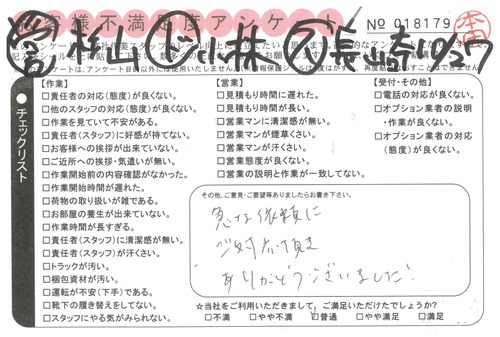 お客様不満足度アンケート No 018179 本田
営 杉山 小林 長山奇 10/27
チェックリスト
【作業】
□責任者の対応(態度)が良くない。
□他のスタッフの対応(態度)が良くない。
□作業を見ていて不安がある。
□責任者(スタッフ)に好感が持てない。
□お客様への挨拶が出来ていない。
□ご近所への挨拶・気遣いが無い。
□作業開始前の内容確認がなかった。
□作業開始時間が遅れた。
□荷物の取り扱いが雑である。
□お部屋の養生が出来ていない。
□作業時間が長すぎる。
□責任者(スタッフ)に清潔感が無い。
□責任者(スタッフ)が汗くさい。
□トラックが汚い。
□梱包資材が汚い。
□運転が不安(下手)である。
□靴下の履き替えをしてない。
□スタッフにやる気がみられない。
【営業】
□見積もり時間に遅れた。
□見積もり時間が長い。
□営業マンに清潔感が無い。
□営業マンが煙草くさい。
□営業マンが汗くさい。
□営業態度が良くない。
□営業の説明と作業が一致してない。
【受付・その他】
□電話の対応が良くない。
□オプション業者の説明
・作業が良くない。
□オプション業者の対応
(態度)が良くない。
その他、ご意見・ご要望等ありましたらお書き下さい。
急な依頼に
ご対応頂き
ありがとうございました!
☆当社をご利用いただきまして、ご満足いただけたでしょうか?
□不満 □やや不満 □普通 □やや満足 □満足